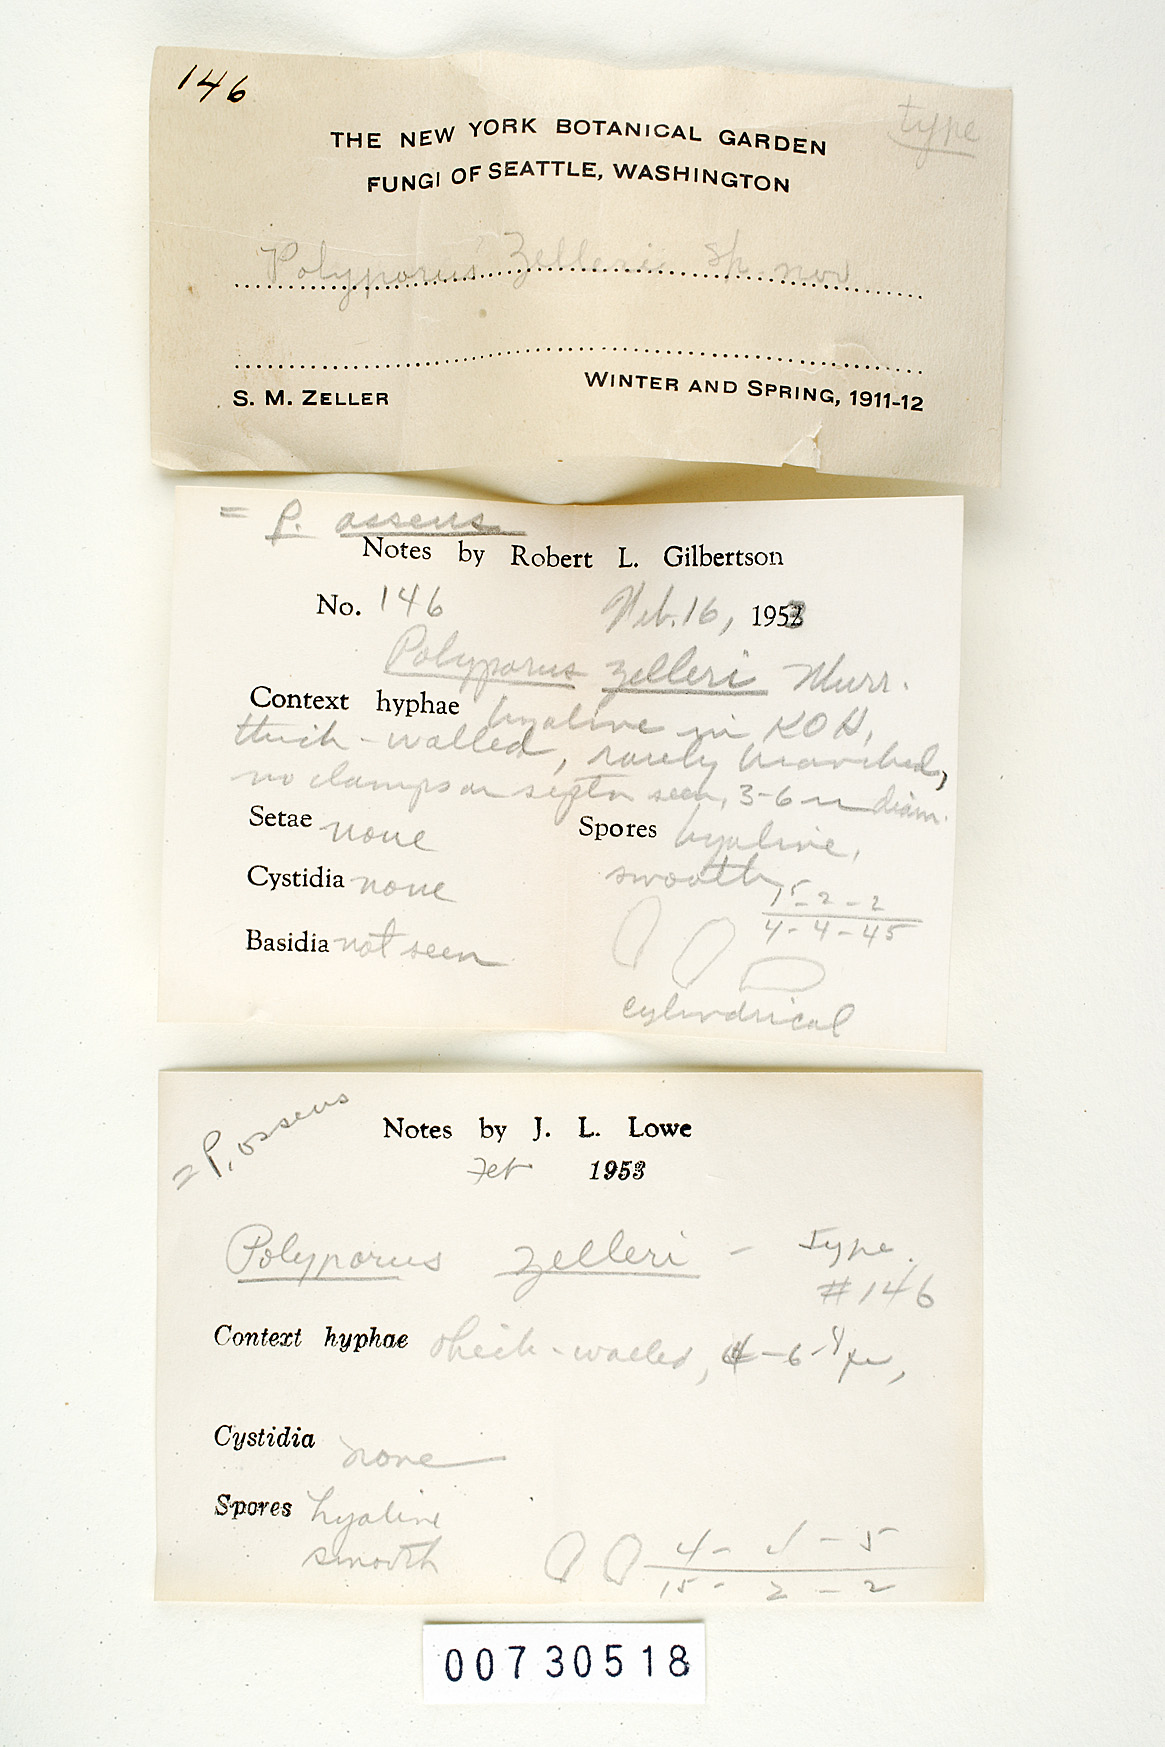 146
type
THE NEW YORK BOTANICAL GARDEN
FUNGI OF SEATTLE, WASHINGTON
Polyporus Zelleri sp. nov
S. M. ZELLER
WINTER AND SPRING, 1911-12
= P. osseus
Notes by Robert L. Gilbertson
No. 146
Feb. 16, 1953
Polyporus zelleri Murr.
Context hyphae hyaline in KOH,
thick-walled, rarely branched,
no clamps or septa seen, 3-6 µ diam.
Setae none
Spores hyaline,
smooth
Cystidia none
15-2-2
4-4-45
Basidia not seen
cylindrical
= P. osseus
Notes by J. L. Lowe
Feb 1953
Polyporus zelleri - Type.
#146
Context hyphae thick-walled, 4-6-8µ,
Cystidia none
Spores hyaline
smooth
4- -5
15-2-2
00730518